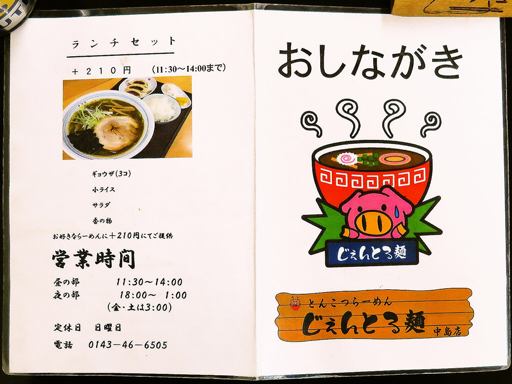 ランチセット
+210円 (11:30~14:00まで)
ギョウザ(3コ)
小ライス
サラダ
香の物
お好きならーめんに+210円にてご提供
営業時間
昼の部 11:30~14:00
夜の部 18:00~ 1:00
(金・土は3:00)
定休日 日曜日
電話 0143-46-6505
おしながき
じぇんとる麺
とんこつらーめん
じぇんとる麺 中島店